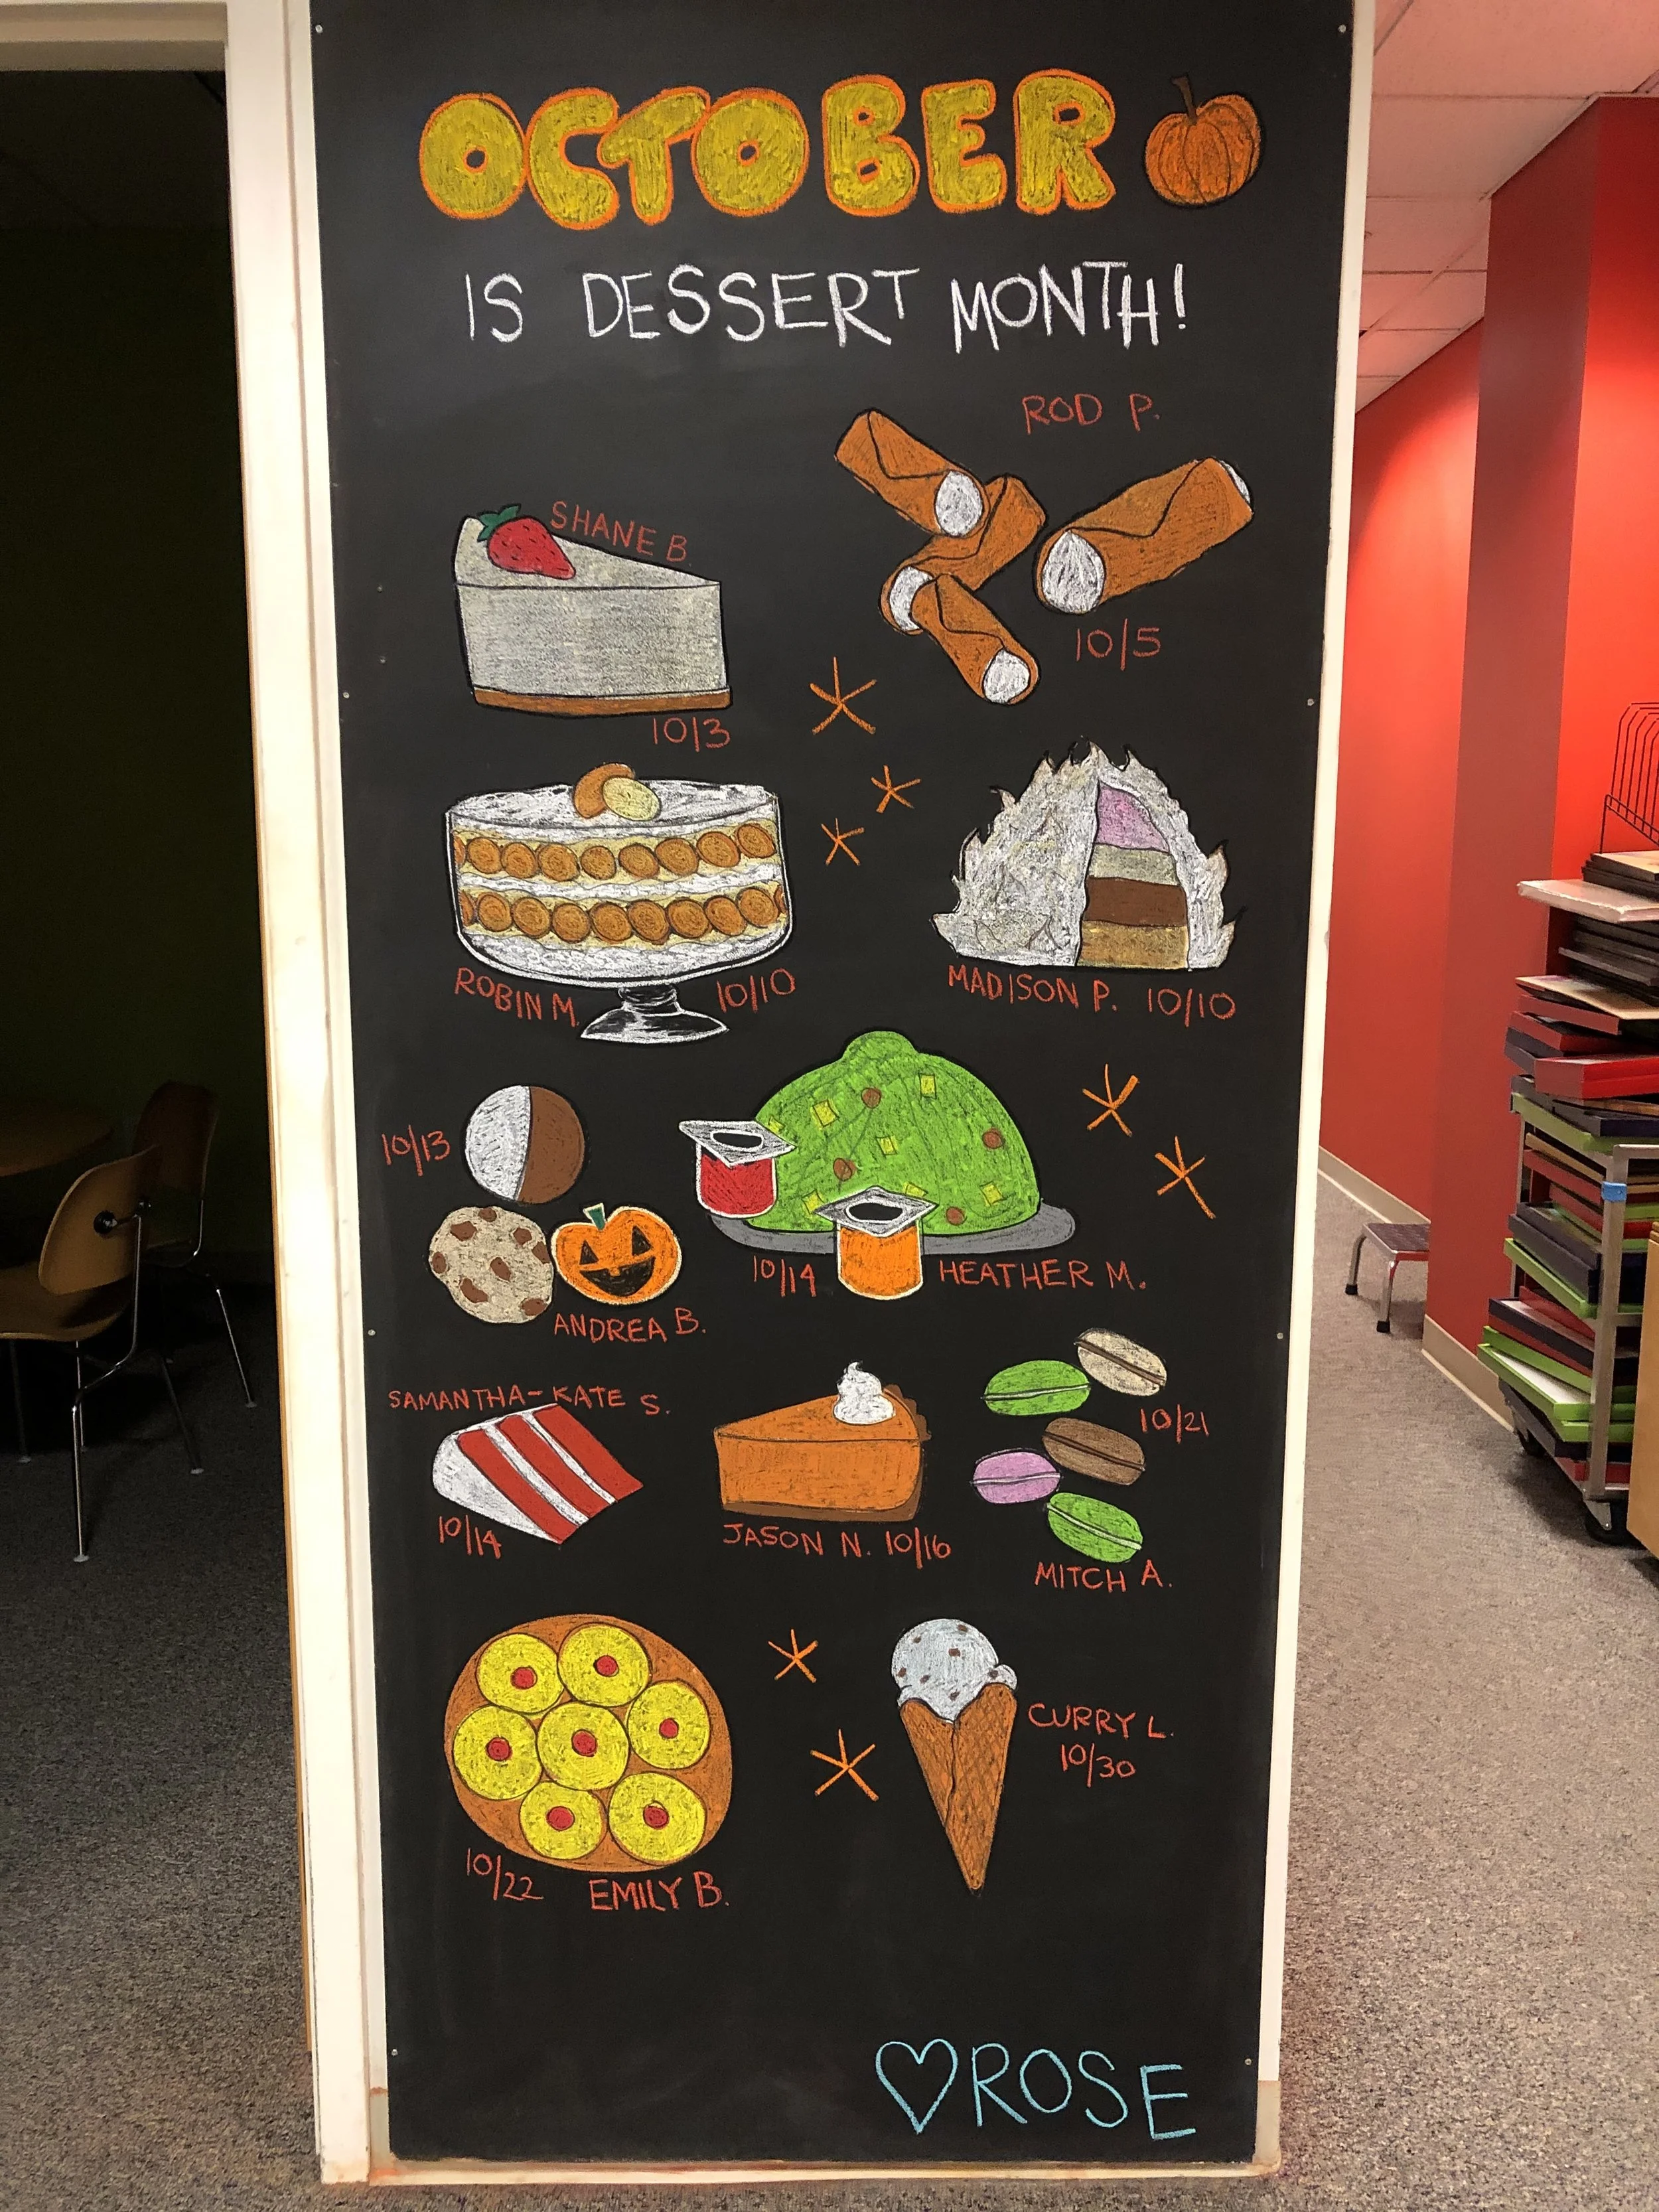 OCTOBER
IS DESSERT MONTH!
ROD P.
10/5
SHANE B.
10/3
ROBIN M.
10/10
MADISON P. 10/10
10/13
ANDREA B.
10/14
HEATHER M.
SAMANTHA-KATE S.
10/14
JASON N. 10/16
10/21
MITCH A.
10/22
EMILY B.
CURRY L.
10/30
♡ROSE